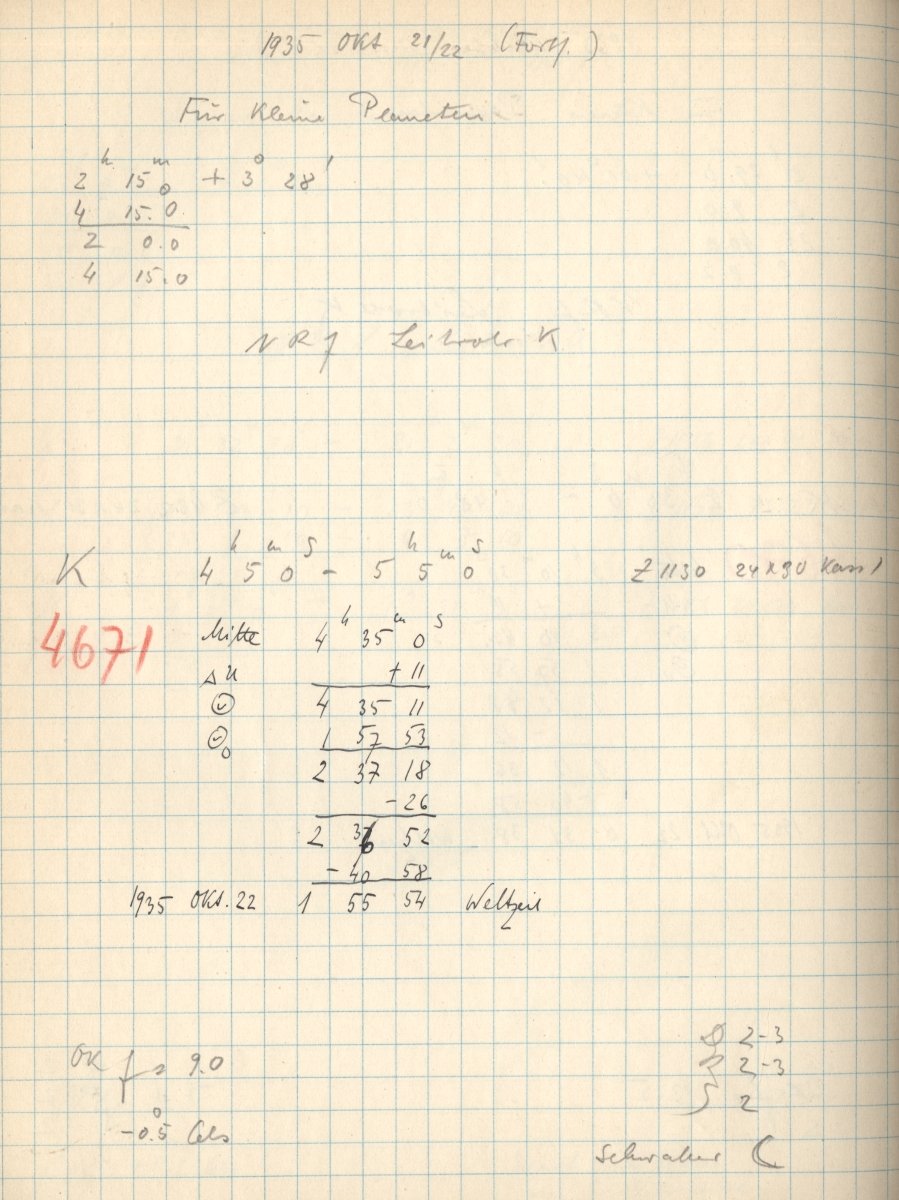 1935 OKT 21/22 (Forts.)
Für Kleine Planeten
2ʰ 15ᵐ0 + 3° 28'
4 15.0
2 0.0
4 15.0
Leitrohr K
K 4ʰ 5ᵐ 0ˢ - 5ʰ 5ᵐ 0ˢ Z 1130 24x30 Kass 1
4671 Mitte 4ʰ 35ᵐ 0ˢ
Δu + 11
4 35 11
1 57 53
2 37 18
- 26
2 36 52
- 40 58
1935 OKT. 22 1 55 54 Weltzeit
OK f = 9.0
-0.5° Cels
2-3
2-3
2
schwacher ☾